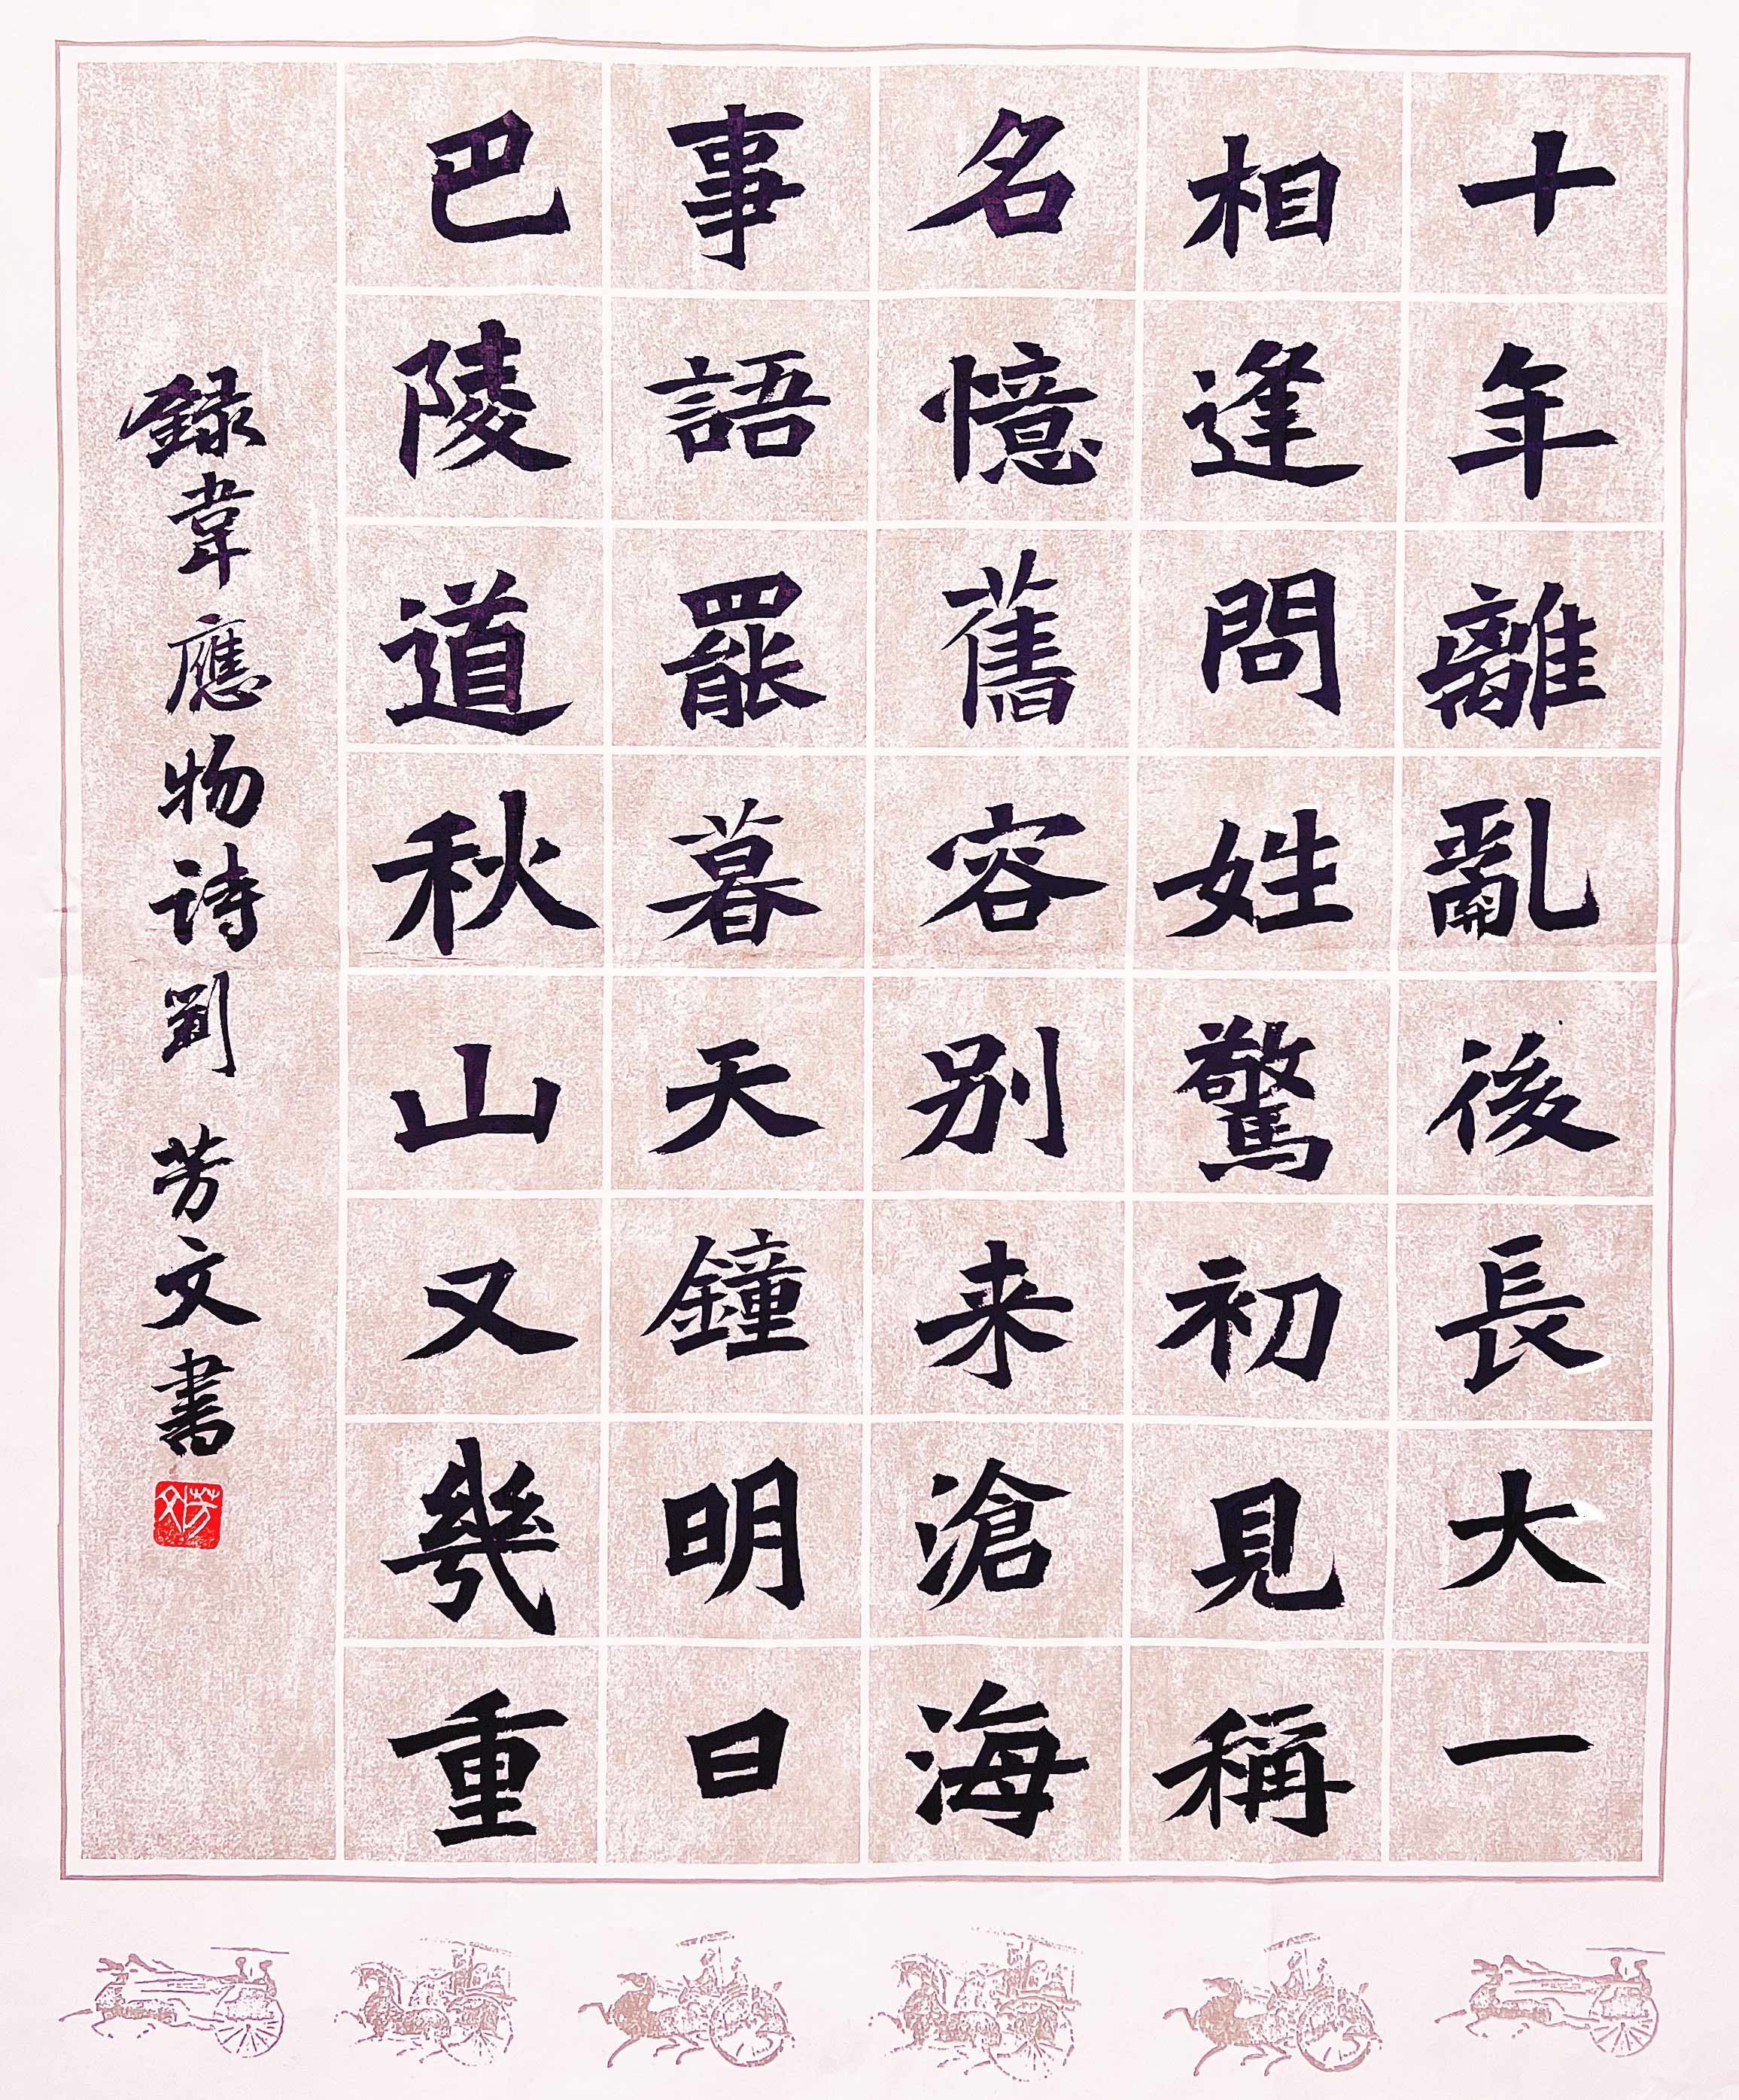 十年離亂後長大一
相逢問姓驚初見稱
名憶舊容别来滄海
事語罷暮天鐘明日
巴陵道秋山又幾重
録韋應物詩劉芳文書
芳文